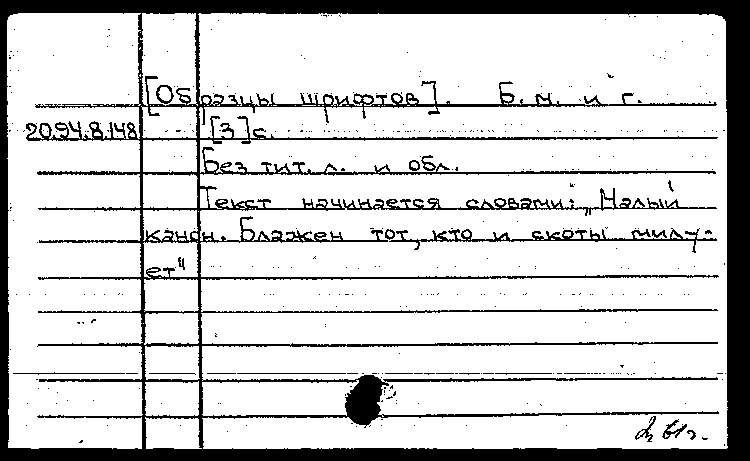 [Образцы шрифтов]. Б.м. и г.
20.94.8.148 [3]с.
Без тит. л. и обл.
Текст начинается словами: „Малый
канон. Блажен тот, кто и скоты милу-
ет"
61г.